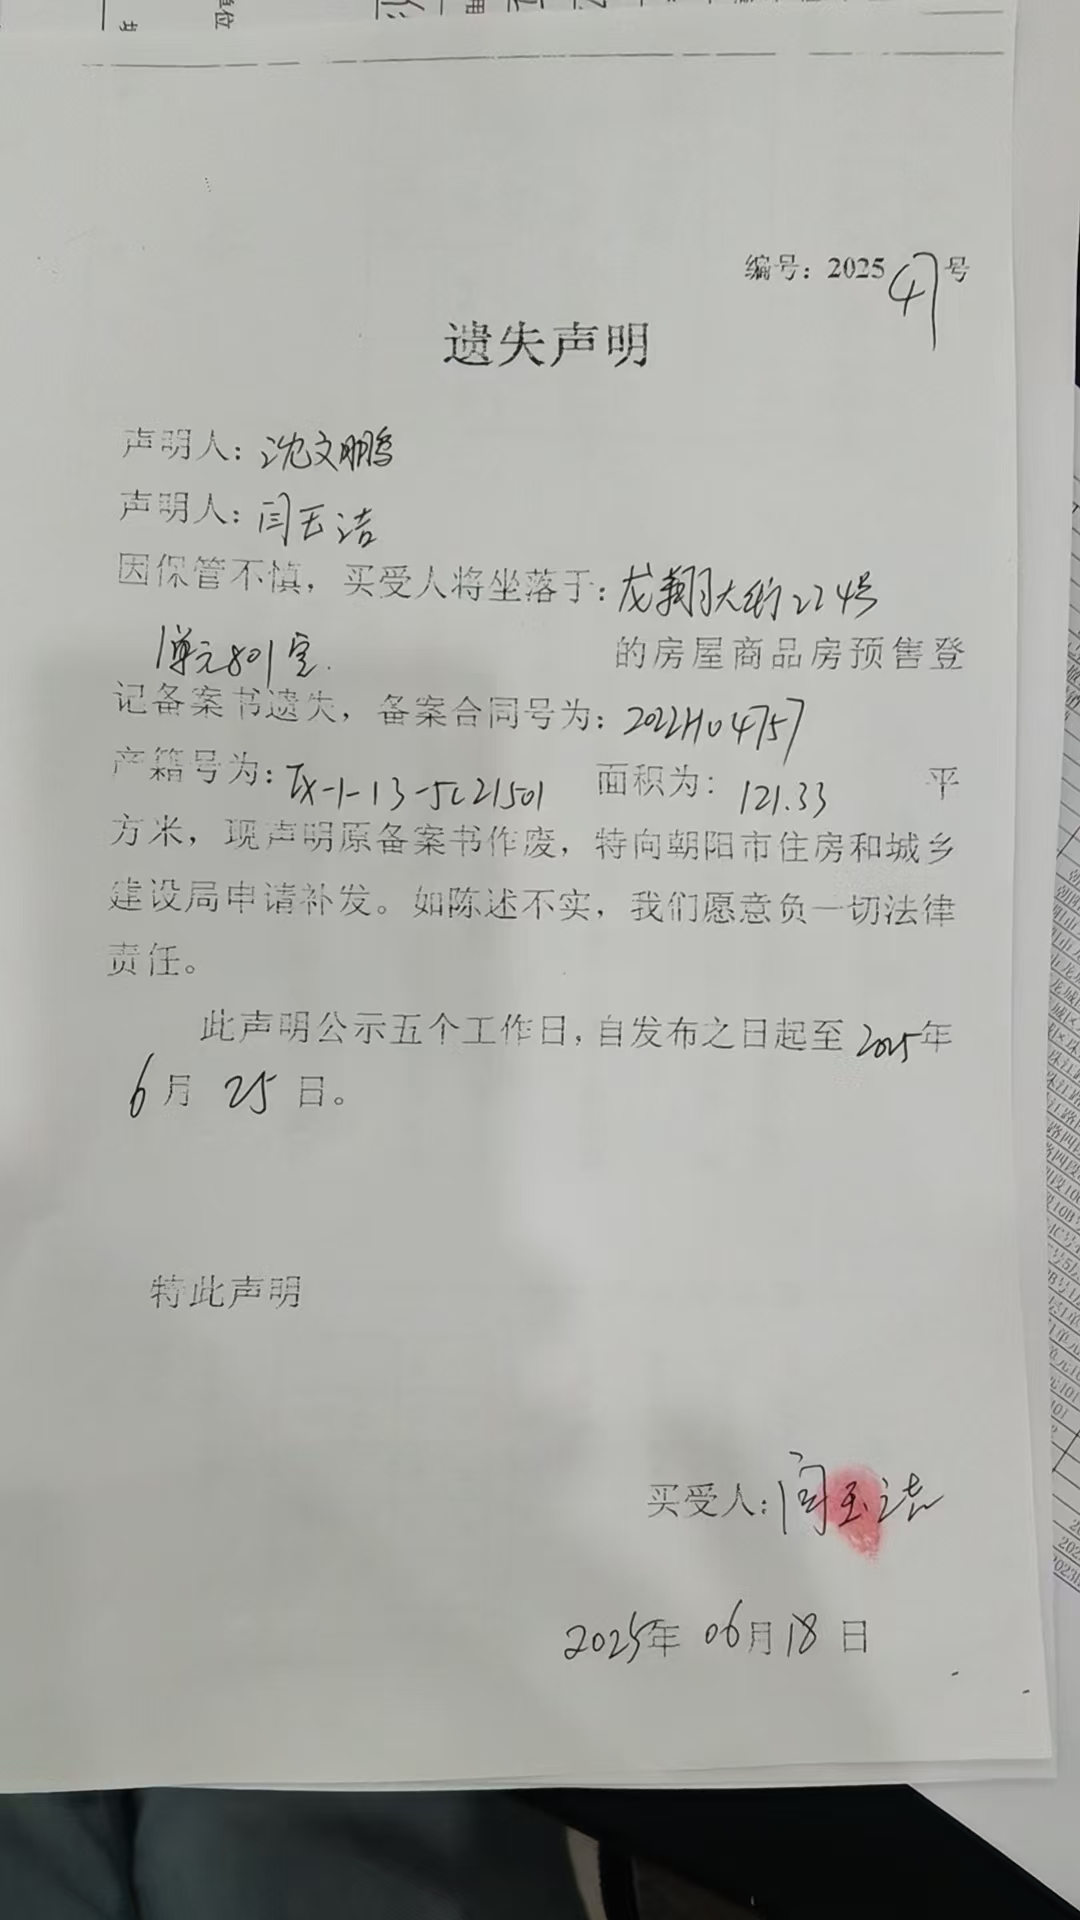 编号：2025 47号
遗失声明
声明人：沈文鹏
声明人：闫玉洁
因保管不慎，买受人将坐落于：龙翔大街22-4号
1单元801室 的房屋商品房预售登
记备案书遗失，备案合同号为：2022H04757
产籍号为：TX-1-13-5C21501 面积为：121.33 平
方米，现声明原备案书作废，特向朝阳市住房和城乡
建设局申请补发。如陈述不实，我们愿意负一切法律
责任。
此声明公示五个工作日，自发布之日起至2025年
6月25日。
特此声明
买受人：闫玉洁
2025年06月18日